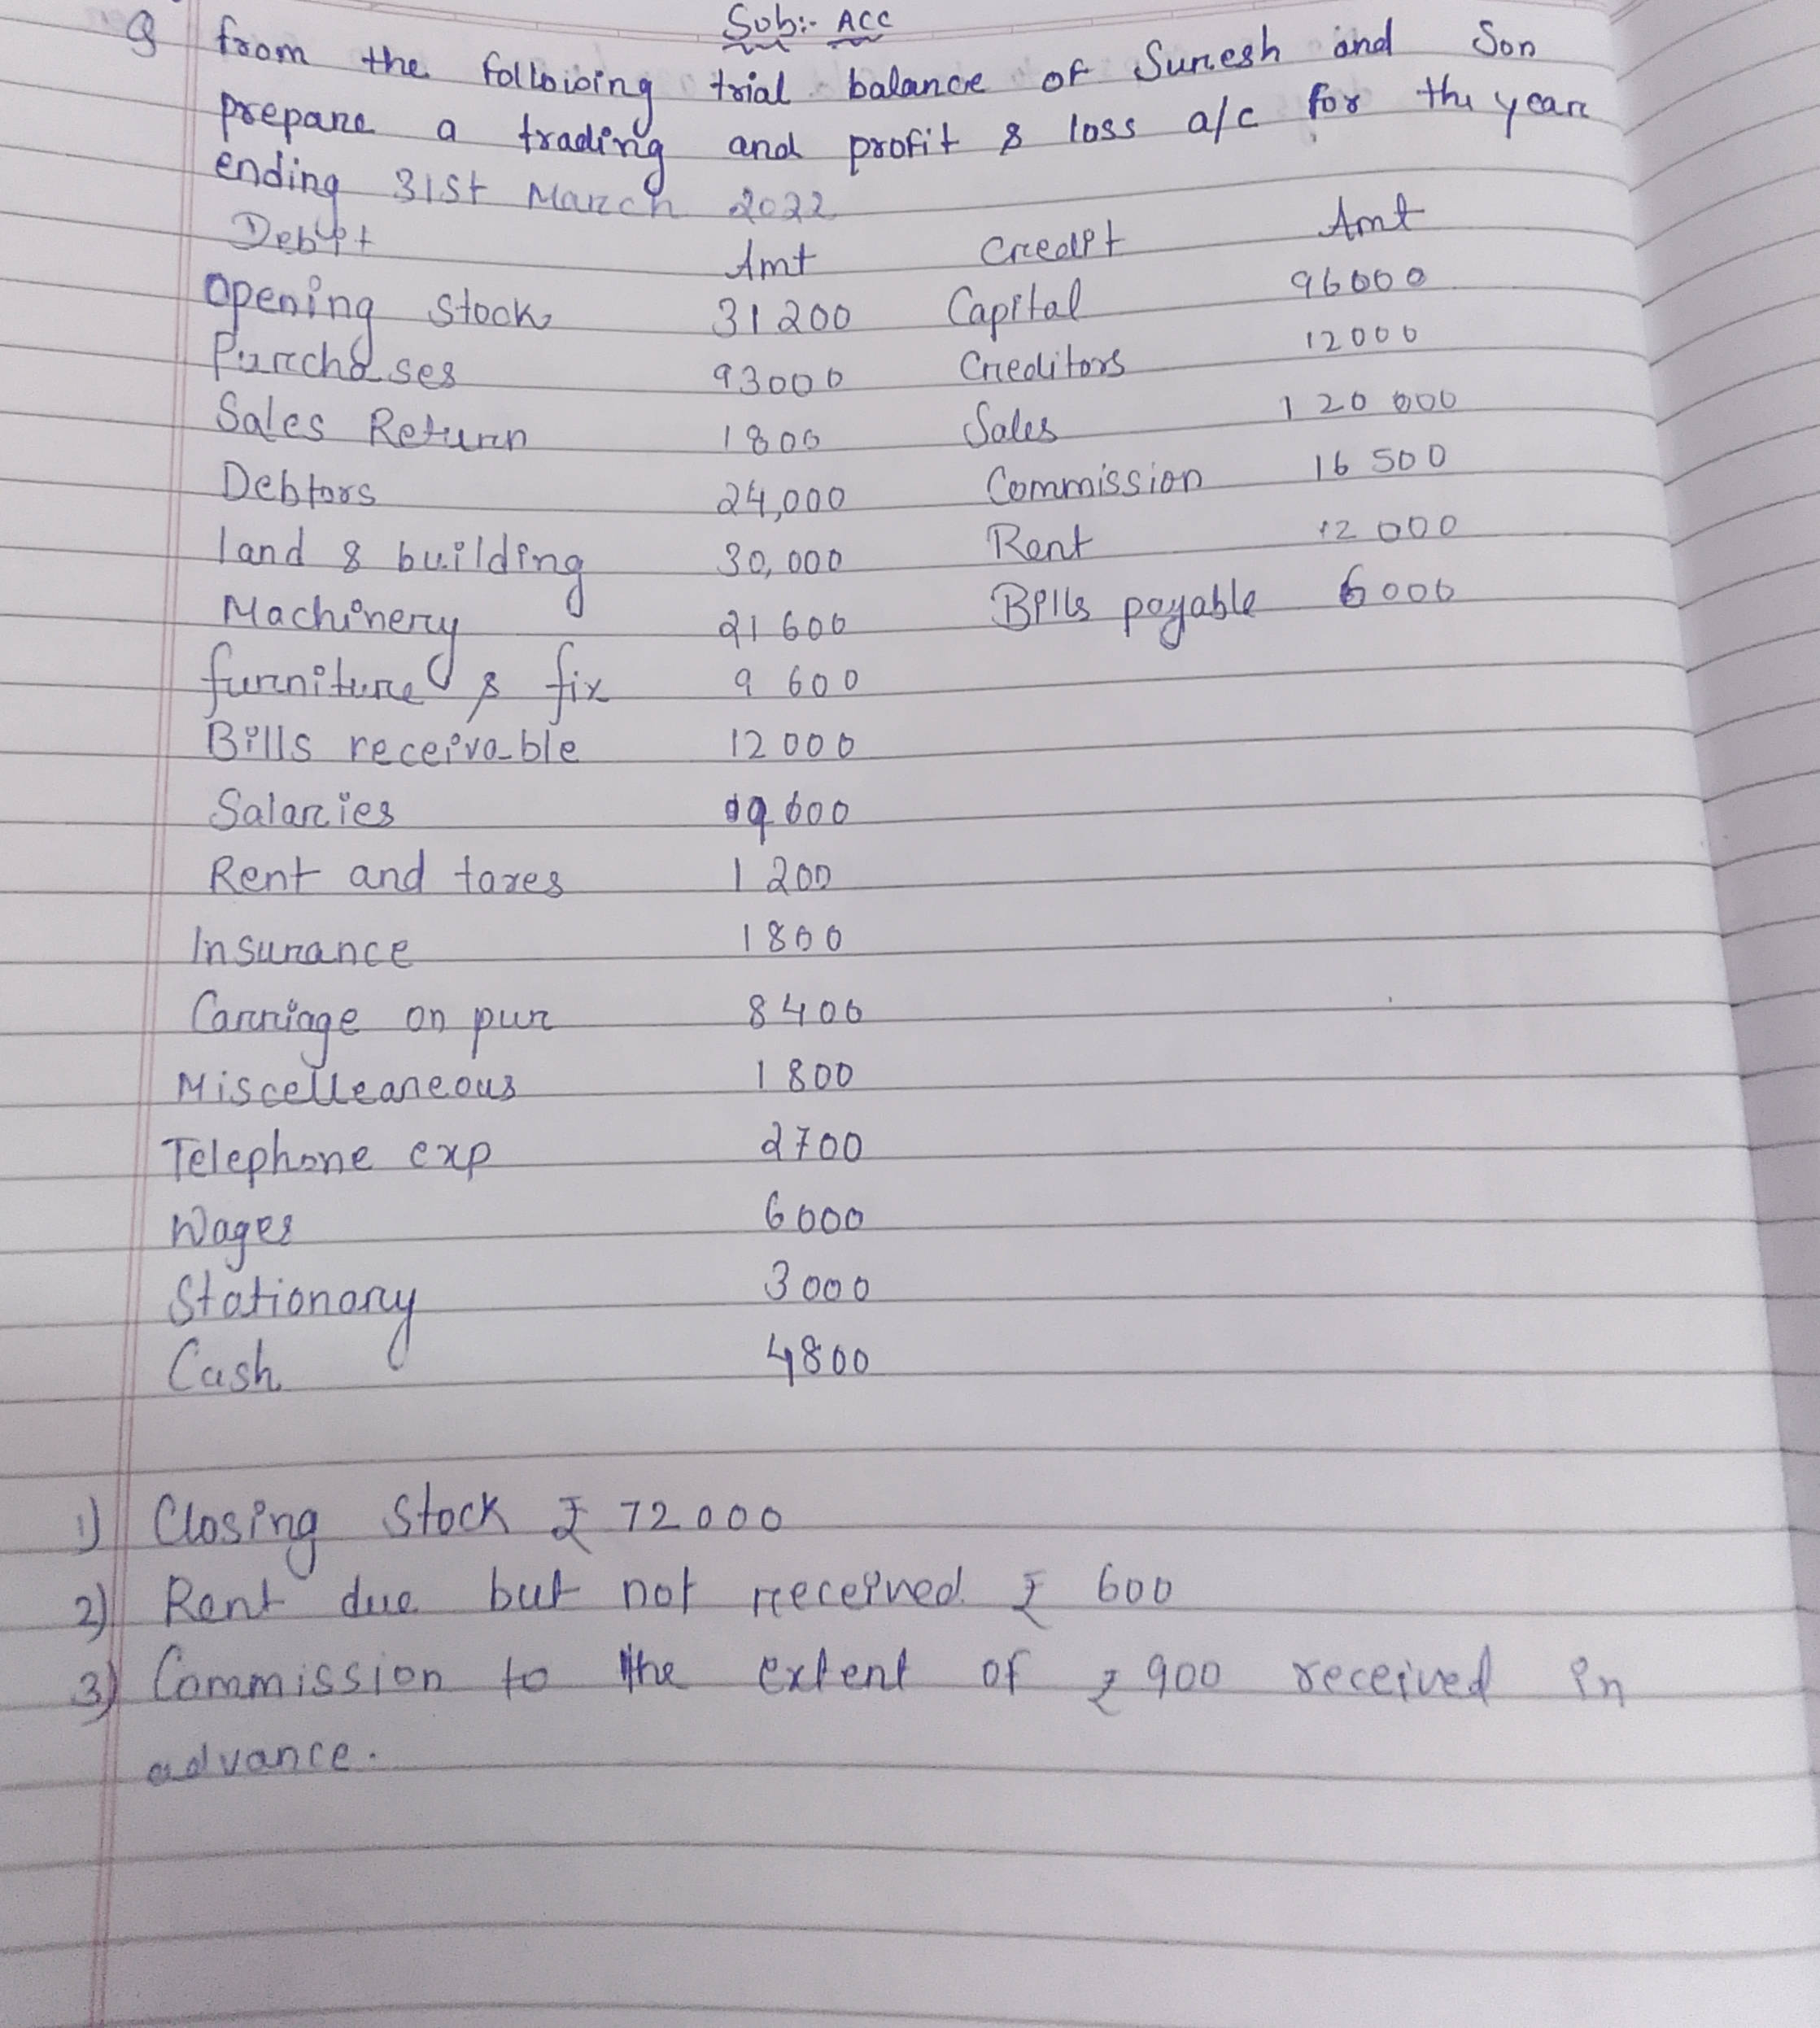 Sub:- ACC
Q from the following trial balance of Suresh and Son
prepare a trading and profit & loss a/c for the year
ending 31st March 2022
Debit Amt Credit Amt
Opening stock 31200 Capital 96000
Purchases 93000 Creditors 12000
Sales Return 1800 Sales 120000
Debtors 24,000 Commission 16500
land & building 30,000 Rent 12000
Machinery 21600 Bills payable 6000
furniture & fix 9600
Bills receivable 12000
Salaries 9600
Rent and taxes 1200
Insurance 1800
Carriage on pur 8400
Miscelleaneous 1800
Telephone exp 2700
Wages 6000
Stationary 3000
Cash 4800
1) Closing Stock ₹ 72000
2) Rent due but not received ₹ 600
3) Commission to the extent of ₹ 900 received in
advance.